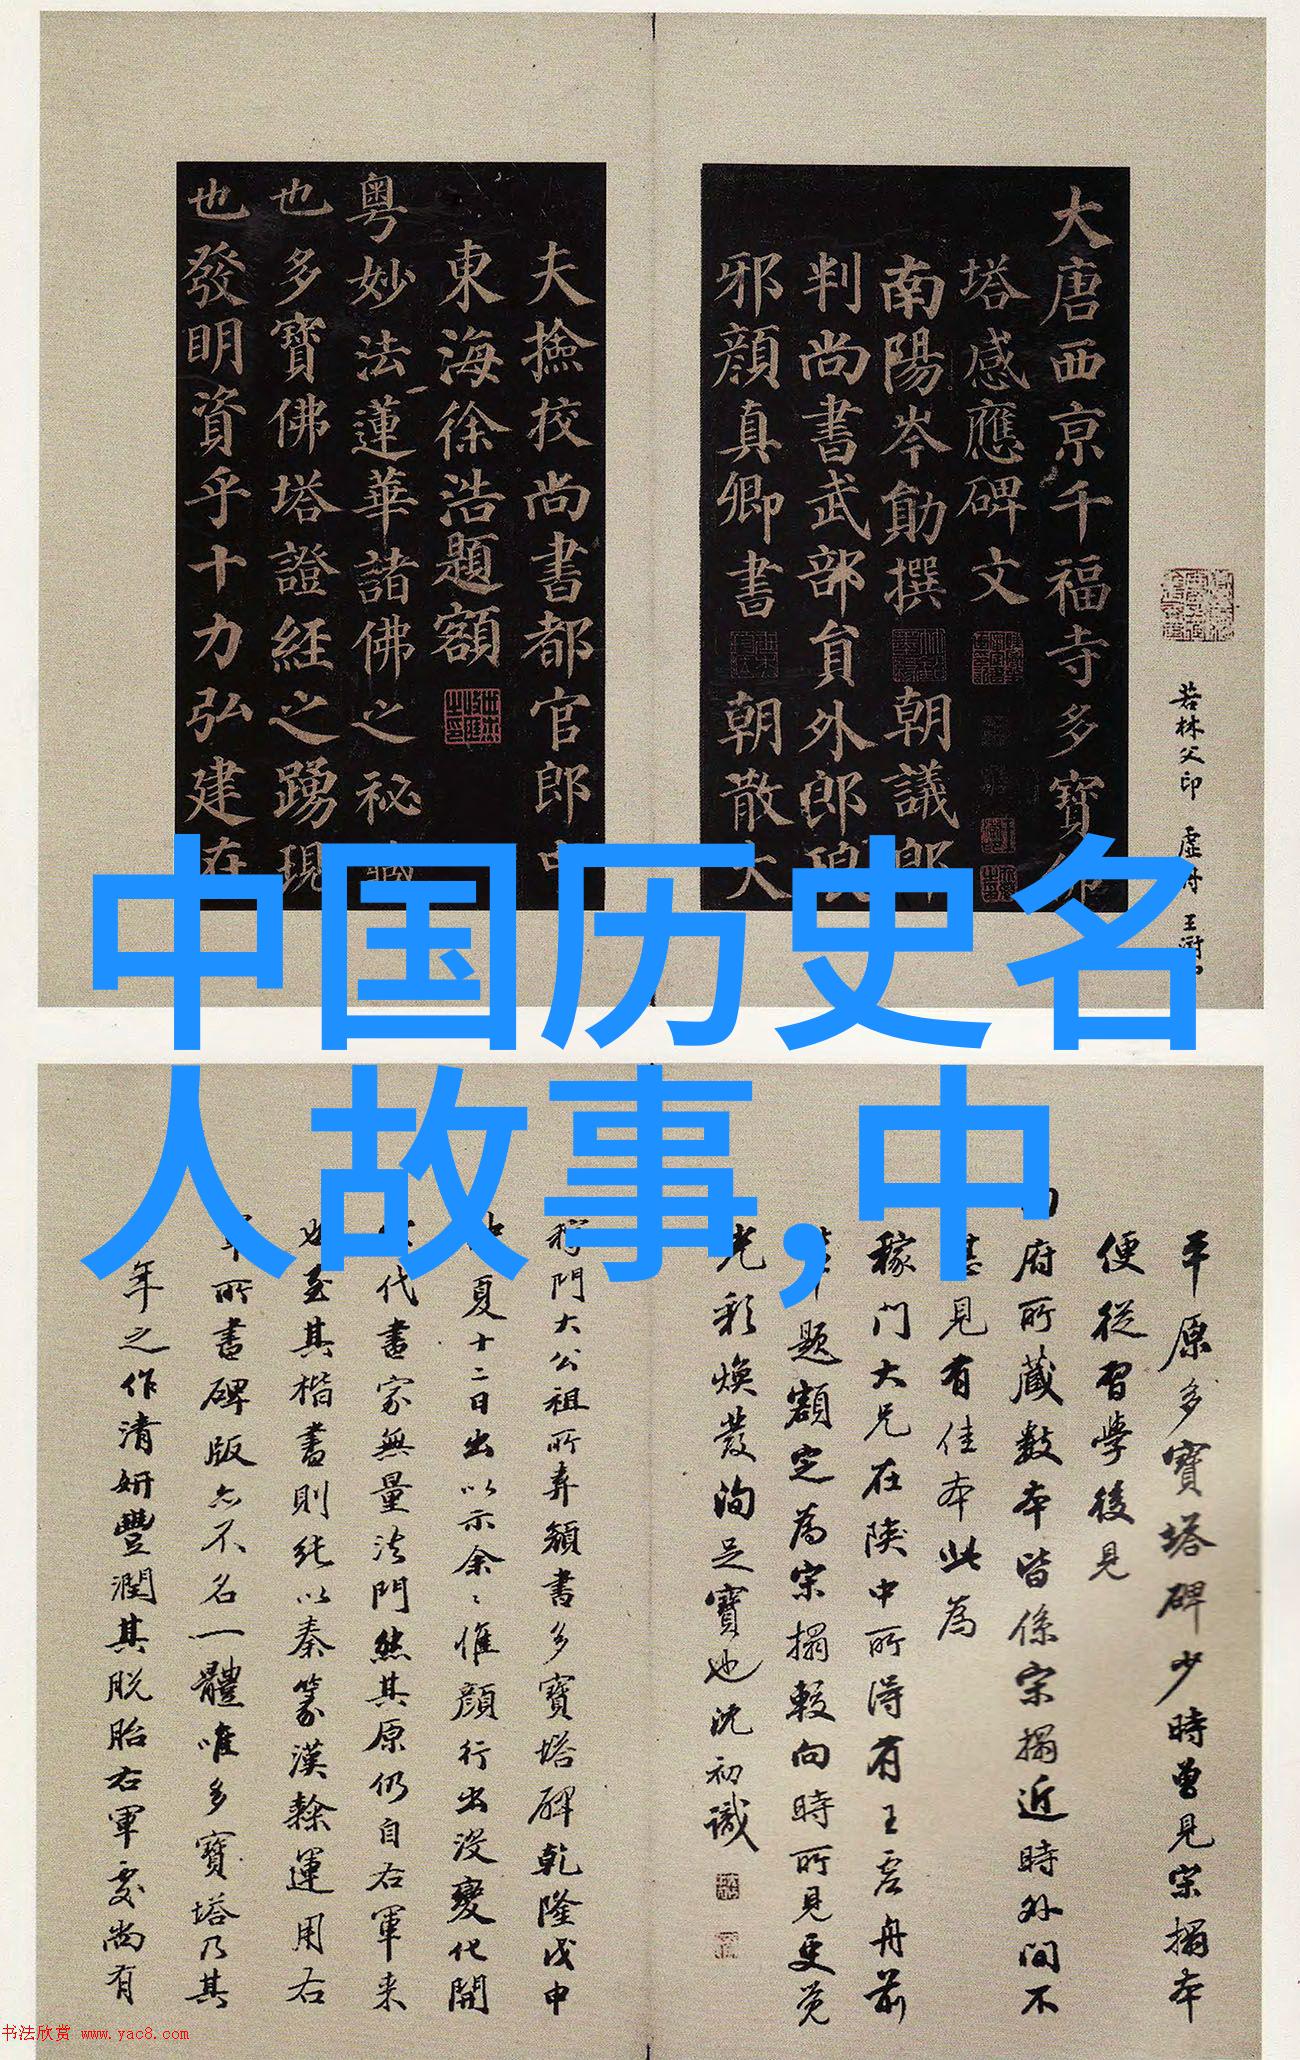 大唐西京千福寺多寶佛
塔感應碑文
南陽岑勛撰 朝議郎
判尚書武部員外郎琅
邪顏真卿書 朝散大
夫撿挍尚書都官郎中
東海徐浩題額
粵妙法蓮華諸佛之祕藏
也多寶佛塔證經之踴現
也發明資乎十力弘建在
若林父印 虛舟 王澍印
中国历史名
人故事,中
平原多寶塔碑少時曾見宋搨本
便從習學後見
内府所藏數本皆係宋搨近時外間不
甚見有佳本此為
稼门大兄在陕中所得有王虚舟前
輩題額定為宋搨較向時所見更覺
光彩煥發洵足寶也沈初識
稼門大公祖所弆顏書多寶塔碑乾隆戊申
仲夏十二日出以示余
惟顏行出没變化開
代書家無量法門然其原仍自右軍来
也至其楷書則純以秦篆漢隸運用右
軍所書碑版亦不名一體唯多寶塔乃其
年之作清妍豐潤其脱胎右軍處尚有
书法欣赏 www.yac8.com